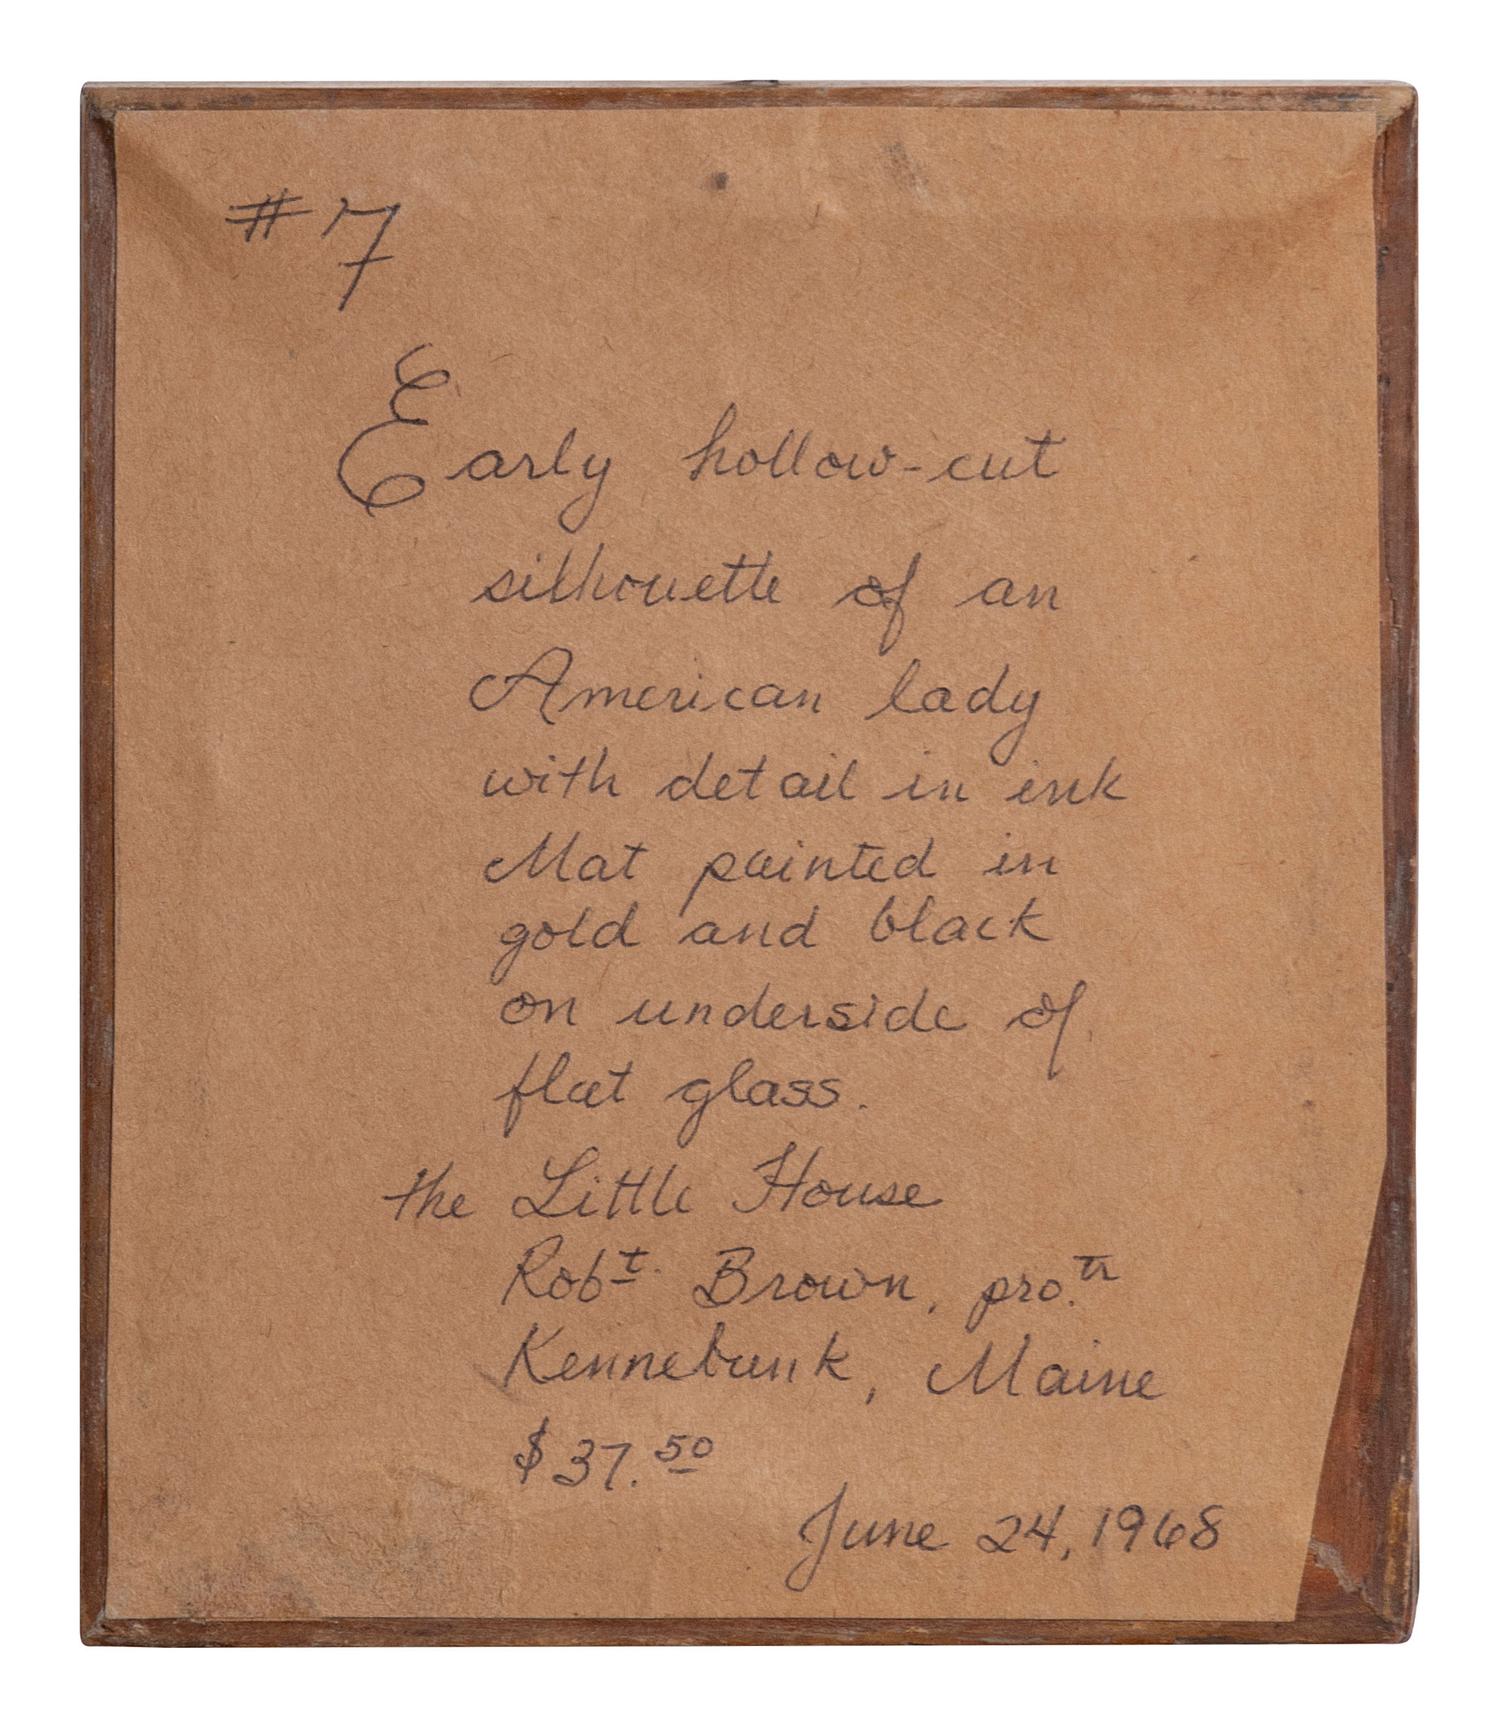 #7
Early hollow-cut
silhouette of an
American lady
with detail in ink
Mat painted in
gold and black
on underside of
flat glass.
the Little House
Robt. Brown, pro.tr
Kennebunk, Maine
$37.50
June 24, 1968